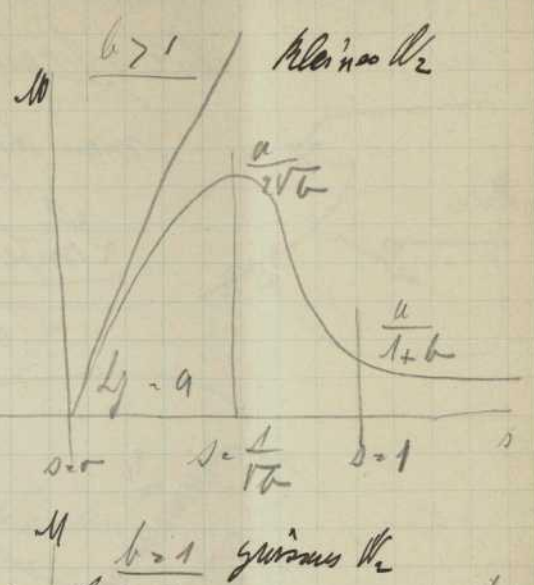 b > 1 kleines W₂
M
a/2√b
a/1+b
tg = a
s=0 s = 1/√b s = 1 s
M
b > 1 grösseres W₂